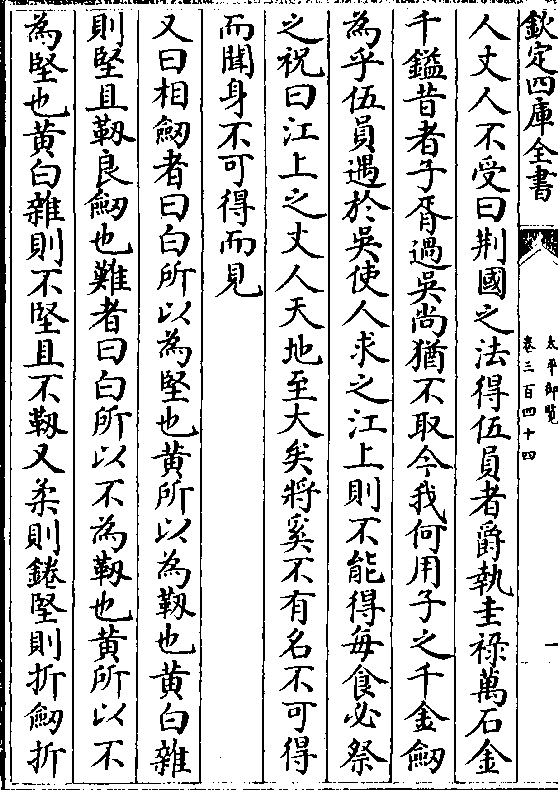 欽定四庫全書
太平御覽
卷三百四十四
一
人丈人不受曰荆國之法得伍員者爵執圭祿萬石金
千鎰昔者子胥過吳尚猶不取今我何用子之千金劒
為乎伍員遇於吳使人求之江上則不能得每食必祭
之祝曰江上之丈人天地至大矣將奚不有名不可得
而聞身不可得而見
又曰相劒者曰白所以為堅也黄所以為靱也黄白雜
則堅且靱良劒也難者曰白所以不為靱也黄所以不
為堅也黄白雜則不堅且不靱又柔則錈堅則折劒折